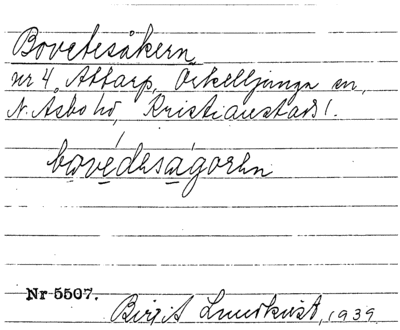 Bovetesåkern
nr 4 Attarp, Örkelljunga sn,
N. Åsbo hd, Kristianstads l.
bovédesågoren
Nr 5507.
Birgit Lundkvist, 1939